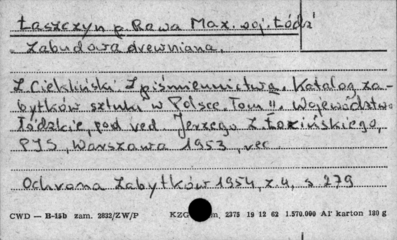 Łaszczyn p. Rawa Maz. woj. Łódź
Zabudowa drewniana.
Z. Ciekliński Z piśmiennictwa. Katalog za-
bytków sztuki w Polsce. Tom II. Województwo
łódzkie, pod red. Jerzego Z. Łozińskiego,
PIS, Warszawa 1953, rec
Ochrona Zabytków 1954, z. 4, s 279
CWD — B-15b zam. 2832/ZW/P KZG m, 2375 19 12 62 1.570.000 A1' karton 180 g